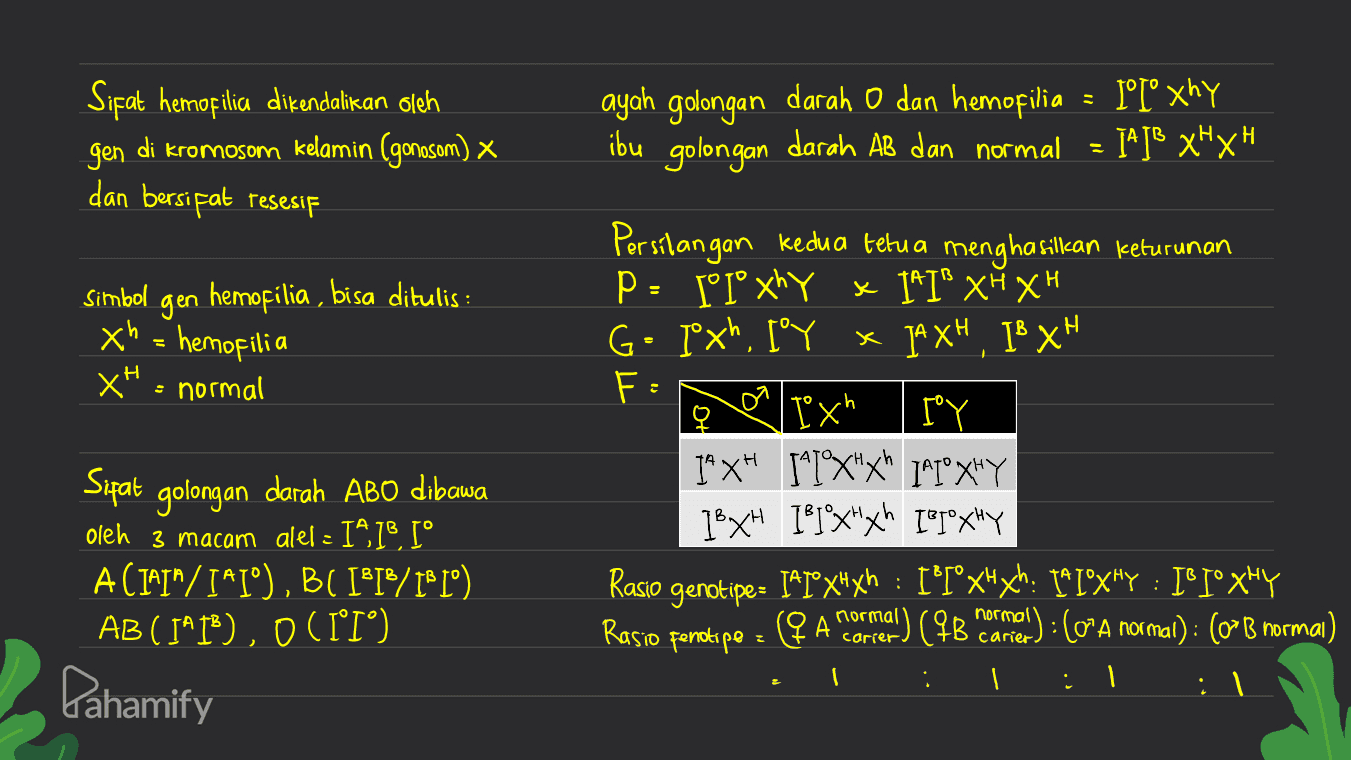 Sifat hemofilia dikendalikan oleh
gen di kromosom kelamin (gonosom) X
dan bersifat resesif
simbol gen hemofilia, bisa ditulis :
Xʰ = hemofilia
Xᴴ = normal
Sifat golongan darah ABO dibawa
oleh 3 macam alel = Iᴬ, Iᴮ, I⁰
A (IᴬIᴬ/IᴬI⁰), B (IᴮIᴮ/IᴮI⁰)
AB (IᴬIᴮ), O (I⁰I⁰)
ayah golongan darah O dan hemofilia = I⁰I⁰ XʰY
ibu golongan darah AB dan normal = IᴬIᴮ XᴴXᴴ
Persilangan kedua tetua menghasilkan keturunan
P = I⁰I⁰ XʰY x IᴬIᴮ XᴴXᴴ
G = I⁰Xʰ, I⁰Y x IᴬXᴴ, IᴮXᴴ
F =
♀ ♂ I⁰Xʰ I⁰Y
IᴬXᴴ IᴬI⁰XᴴXʰ IᴬI⁰XᴴY
IᴮXᴴ IᴮI⁰XᴴXʰ IᴮI⁰XᴴY
Rasio genotipe = IᴬI⁰XᴴXʰ : IᴮI⁰XᴴXʰ : IᴬI⁰XᴴY : IᴮI⁰XᴴY
Rasio fenotipe = (♀ A normal carier) (♀ B normal carier) : (♂ A normal) : (♂ B normal)
= 1 : 1 : 1 : 1
Pahamify